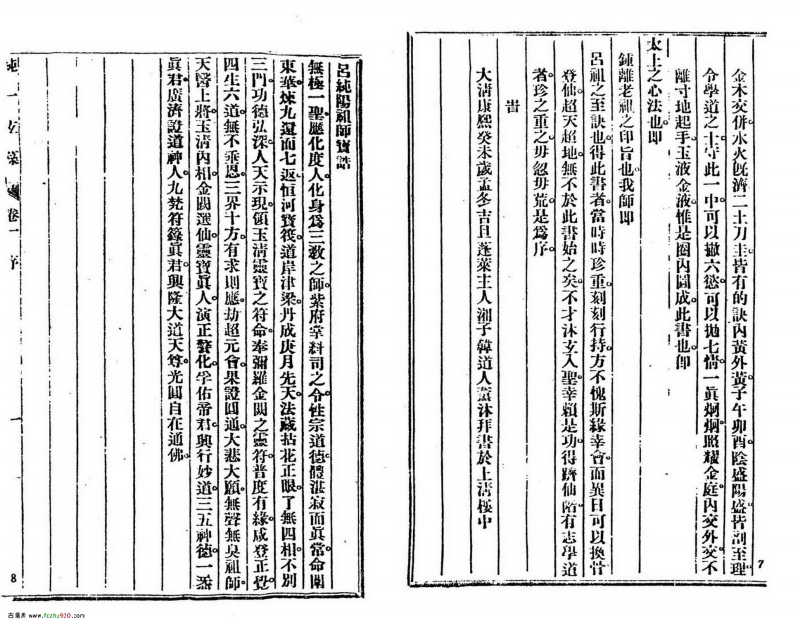 金木交併水火旣濟二土刀圭皆有的訣內黃外黃子午卯酉陰盛陽盛皆剖至理
令學道之士守此一中可以撤六慾可以拋七情一眞炯炯照耀金庭內交外交不
離寸地起手玉液金液惟是圈內圓成此書也卽
太上之心法也卽
鍾離老祖之印旨也我師卽
呂祖之至訣也得此書者當時時珍重刻刻行持方不愧斯緣幸會而異日可以換骨
登仙超天超地無不於此書始之矣不才沐玄入聖幸賴是功得躋仙階有志學道
者珍之重之毋忽毋荒是爲序
旹
大淸康熙癸未歲孟冬吉旦蓬萊主人湘子韓道人薰沐拜書於上淸樓中
7
呂純陽祖師寶誥
無極一聖應化度人化身爲三敎之師紫府掌科司之令性宗道德體湛寂而眞常命闡
東華煉九還而七返恒河寶筏道岸津梁丹成庚月先天法藏拈花正眼了無四相不別
三門功德弘深人天示現領玉淸靈寶之符命奉彌羅金闕之靈符普度有緣咸登正覺
四生六道無不垂恩三界十方有求則應劫超元會果證圓通大悲大願無聲無臭祖師
天醫上將玉淸內相金闕選仙靈寶眞人演正贊化孚佑帝君興行妙道三五神德一炁
眞君廣濟證道神人九梵符籙眞君興隆大道天尊光圓自在通佛
卷一 序
一
8
古籍库 www.fczhu920.com